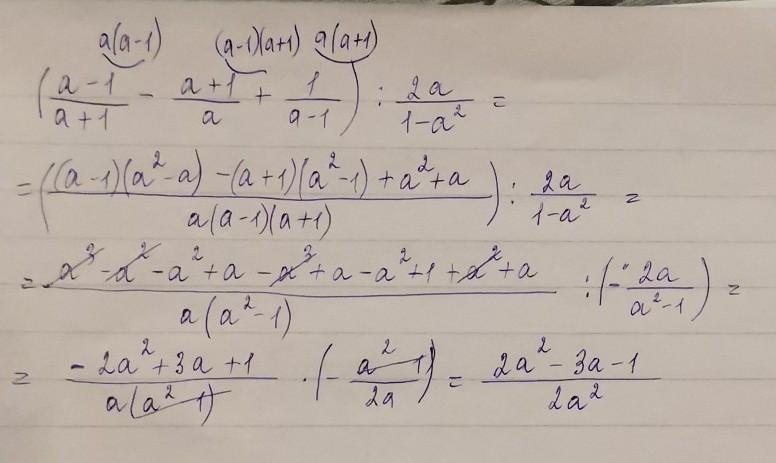 a(a-1) (a-1)(a+1) a(a+1)
((a-1)/(a+1) - (a+1)/a + 1/(a-1)) : 2a/(1-a²) =
= (((a-1)(a²-a) - (a+1)(a²-1) + a²+a)/(a(a-1)(a+1))) : 2a/(1-a²) =
= (a³-a²-a²+a-a³+a-a²+1+a²+a)/(a(a²-1)) : (-2a/(a²-1)) =
= (-2a²+3a+1)/(a(a²-1)) · (-(a²-1)/2a) = (2a²-3a-1)/2a²